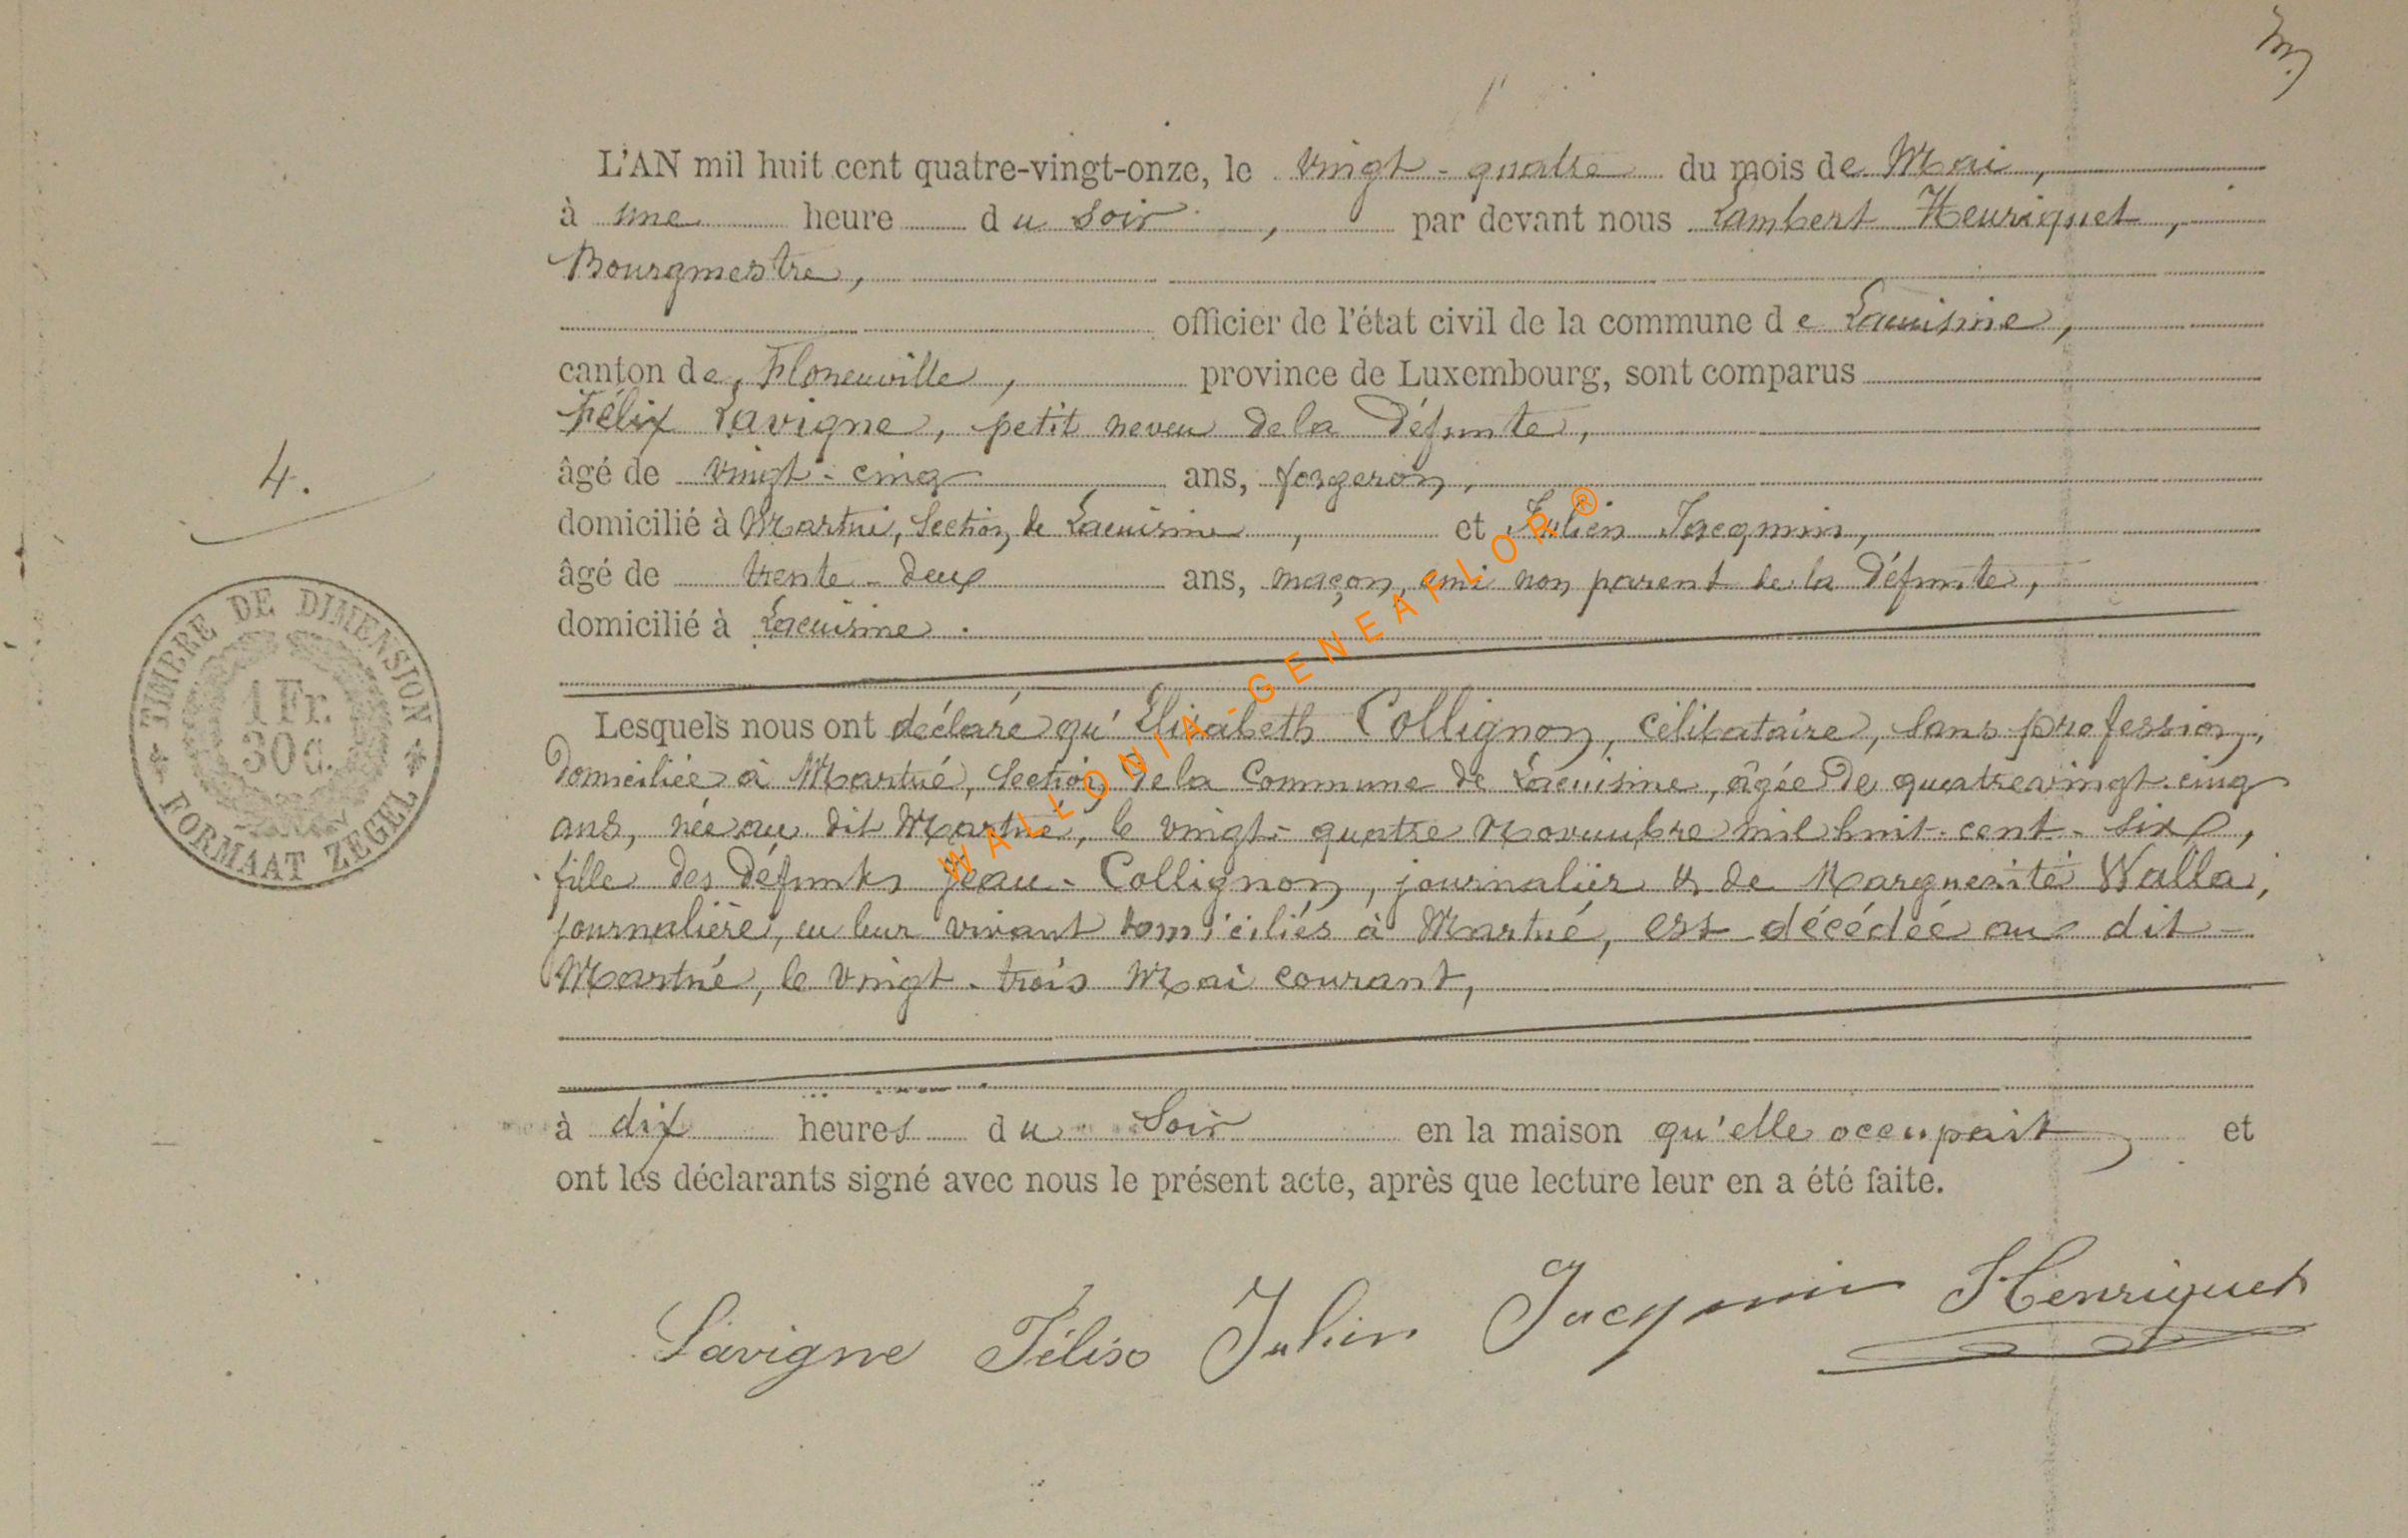 L'AN mil huit cent quatre-vingt-onze, le vingt-quatre du mois de Mai,
à une heure du soir, par devant nous Lambert Henriquet,
Bourgmestre,
officier de l'état civil de la commune de Lacuisine,
canton de, Florenville, province de Luxembourg, sont comparus
Félix Lavigne, petit neveu de la Défunte,
4.
âgé de vingt-cinq ans, forgeron,
domicilié à Martué, Section de Lacuisine, et Julien Jacqmin,
âgé de trente-deux ans, maçon, ami non parent de la Défunte,
domicilié à Lacuisine.
TIMBRE DE DIMENSION
1 Fr.
30 C.
FORMAAT ZEGEL
Lesquels nous ont déclaré qu'Elisabeth Collignon, célibataire, sans profession,
Domiciliée à Martué, Section de la Commune de Lacuisine, âgée De quatrevingt-cinq
ans, née au dit Martué, le vingt-quatre Novembre mil huit-cent-six,
fille des Défunts Jean Collignon, journalier & de Marguerite Walla,
journalière, en leur vivant domiciliés à Martué, est décédée au dit
Martué, le vingt-trois Mai courant,
à dix heures du Soir en la maison qu'elle occupait, et
ont les déclarants signé avec nous le présent acte, après que lecture leur en a été faite.
Lavigne Félix Julien Jacqmin Henriquet
WALLONIA-GENEAFLOR ®